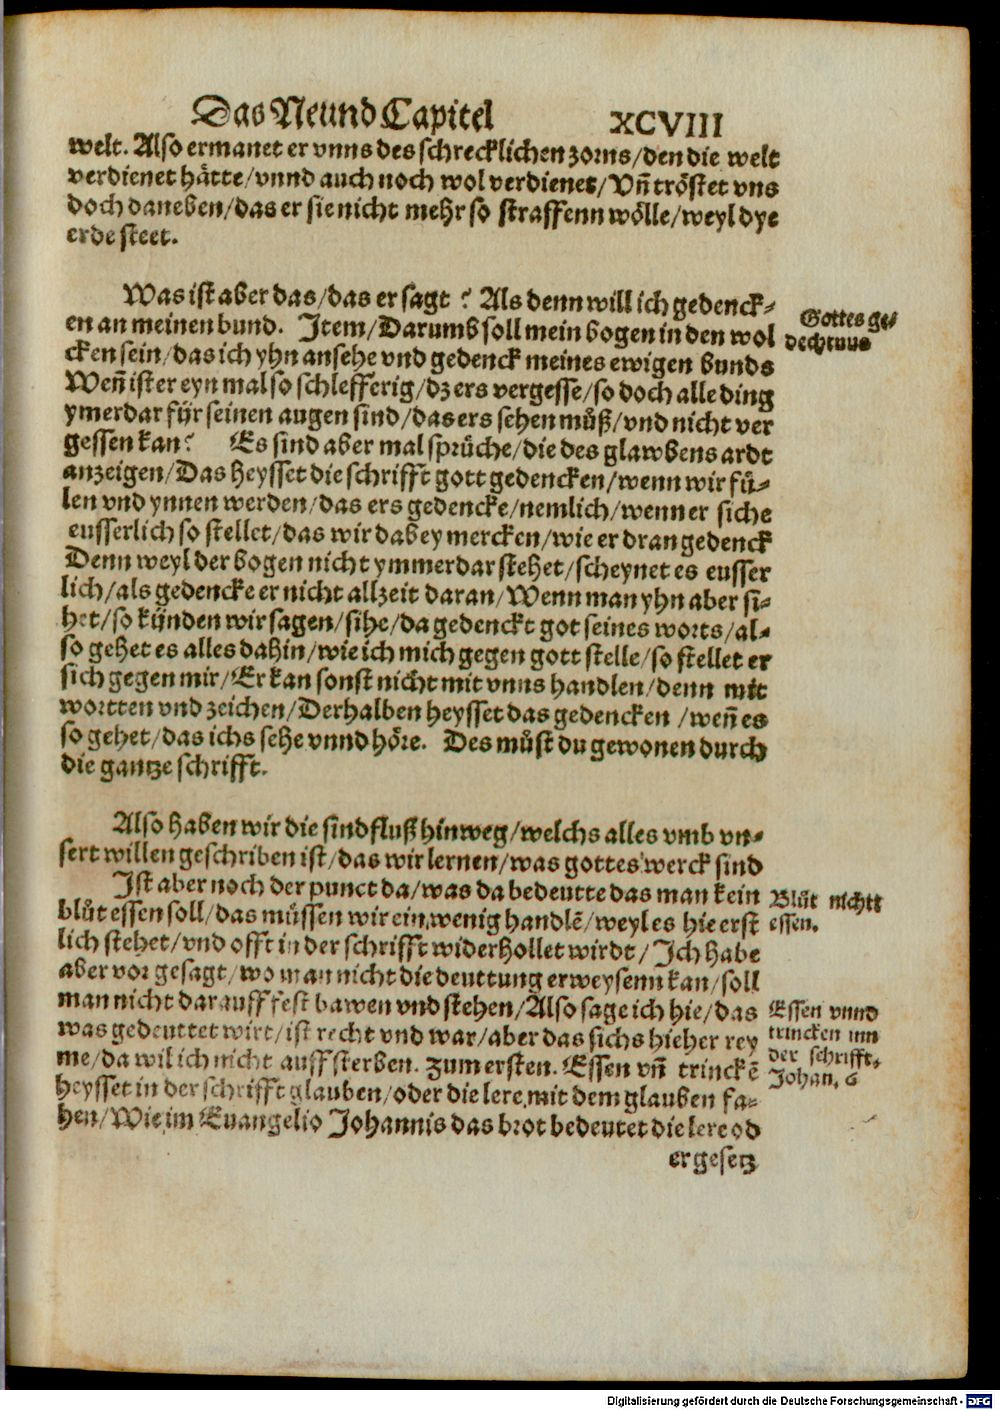 Das Neund Capitel XCVIII
welt. Also ermanet er vnns des schrecklichen zorns/den die welt
verdienet hätte/vnnd auch noch wol verdienet/Vñ tröstet vns
doch daneben/das er sie nicht mehr so straffenn wölle/weyl dye
erde steet.
Was ist aber das/das er sagt? Als denn will ich gedenck-
en an meinen bund. Item/Darumb soll mein bogen in den wol
cken sein/das ich yhn ansehe vnd gedenck meines ewigen bunds
Weñ ist er eyn mal so schlefferig/dz ers vergesse/so doch alle ding
ymerdar für seinen augen sind/das ers sehen můß/vnd nicht ver
gessen kan? Es sind aber mal sprüche/die des glawbens ardt
anzeigen/Das heysset die schrifft gott gedencken/wenn wir fü-
len vnd ynnen werden/das ers gedencke/nemlich/wenn er siche
eusserlich so stellet/das wir dabey mercken/wie er dran gedenck
Denn weyl der bogen nicht ymmerdar stehet/scheynet es eusser
lich/als gedencke er nicht allzeit daran/Wenn man yhn aber si-
het/so künden wir sagen/sihe/da gedenckt got seines worts/al-
so gehet es alles dahin/wie ich mich gegen gott stelle/so stellet er
sich gegen mir/Er kan sonst nicht mit vnns handlen/denn mit
wortten vnd zeichen/Derhalben heysset das gedencken /weñ es
so gehet/das ichs sehe vnnd höre. Des můst du gewonen durch
die gantze schrifft.
Also haben wir die sindfluß hinweg/welchs alles vmb vn-
sert willen geschriben ist/das wir lernen/was gottes werck sind
Ist aber noch der punct da/was da bedeutte das man kein
blůt essen soll/das müssen wir ein wenig handlē/weyl es hie erst
lich stehet/vnd offt in der schrifft widerhollet wirdt/Ich habe
aber vor gesagt/wo man nicht die deuttung erweysenn kan/soll
man nicht darauff fest bawen vnd stehen/Also sage ich hie/das
was gedeuttet wirt/ist recht vnd war/aber das sichs hieher rey
me/da wil ich nicht auff sterben. Zum ersten. Essen vñ trinckē
heysset in der schrifft glauben/oder die lere mit dem glauben fa-
hen/Wie im Euangelio Johannis das brot bedeutet die lere od
er gesetz
Gottes ge-
dechtnus
Blůt nichtt
essen.
Essen vnnd
trincken inn
der schrifft.
Johan. 6
Digitalisierung gefördert durch die Deutsche Forschungsgemeinschaft - DFG